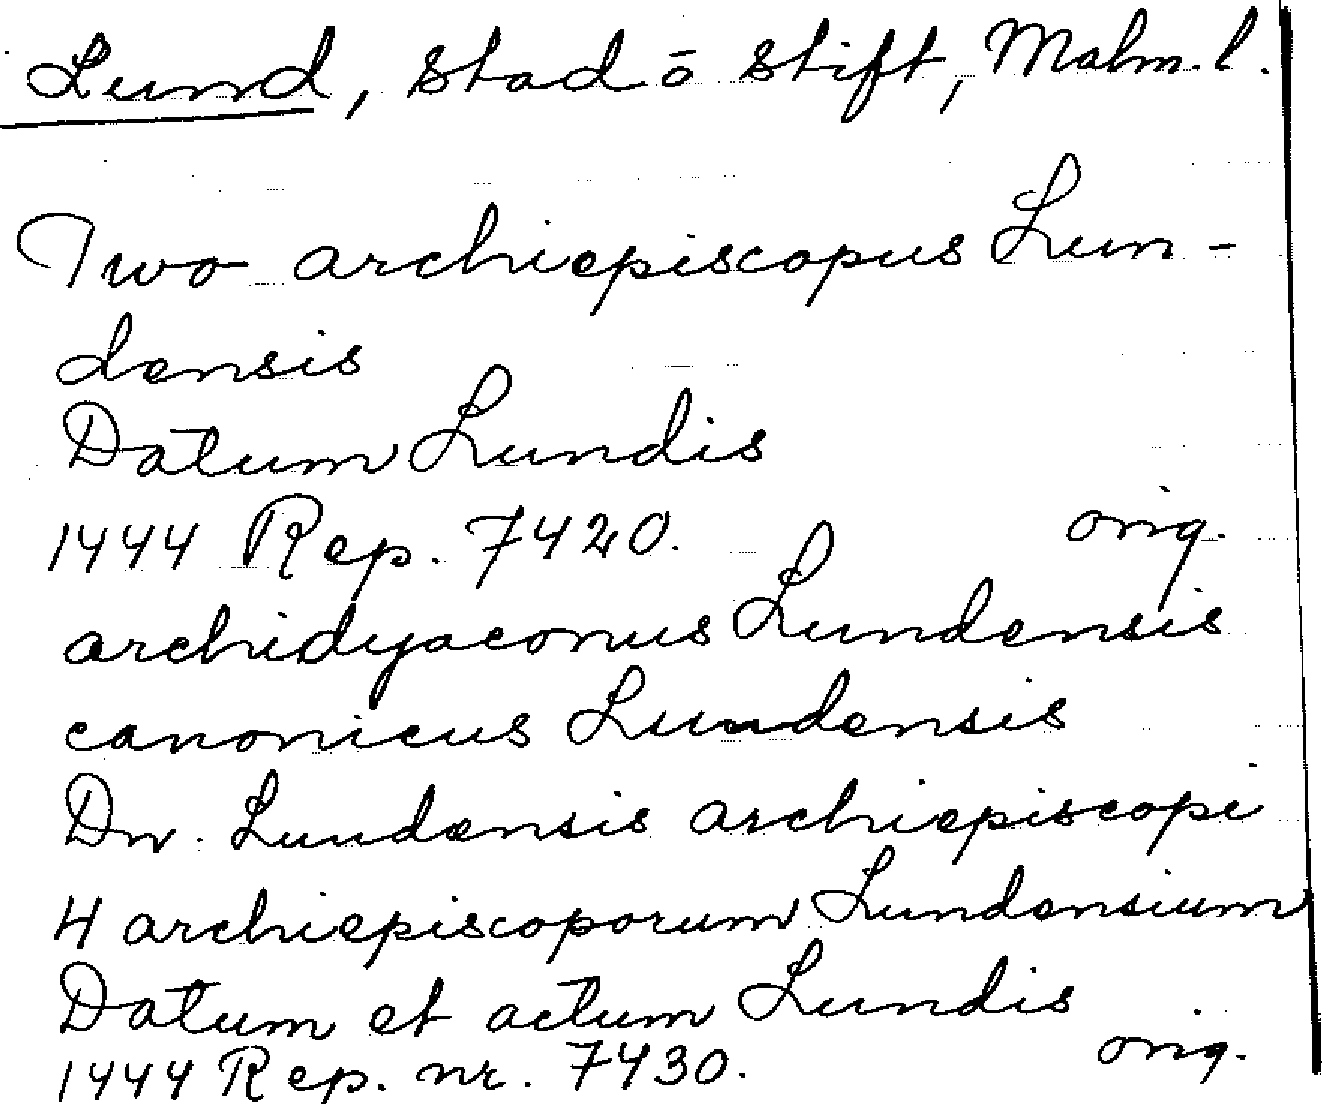 Lund, stad ō stift, Malm. l.
Two archiepiscopus Lun-
densis
Datum Lundis
1444 Rep. 7420. orig.
archidyaconus Lundensis
canonicus Lundensis
Dn. Lundensis archiepiscopi
4 archiepiscoporum Lundensium
Datum et actum Lundis
1444 Rep. nr. 7430. orig.